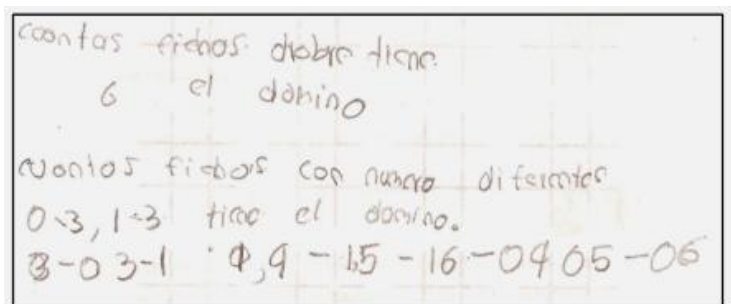 coontas fichas doble tiene
6 el domino
cuontos fichas con numero diferentes
0-3, 1-3 tiene el domino.
3-0 3-1 1,4 - 1,5 - 16 - 04 05 - 06